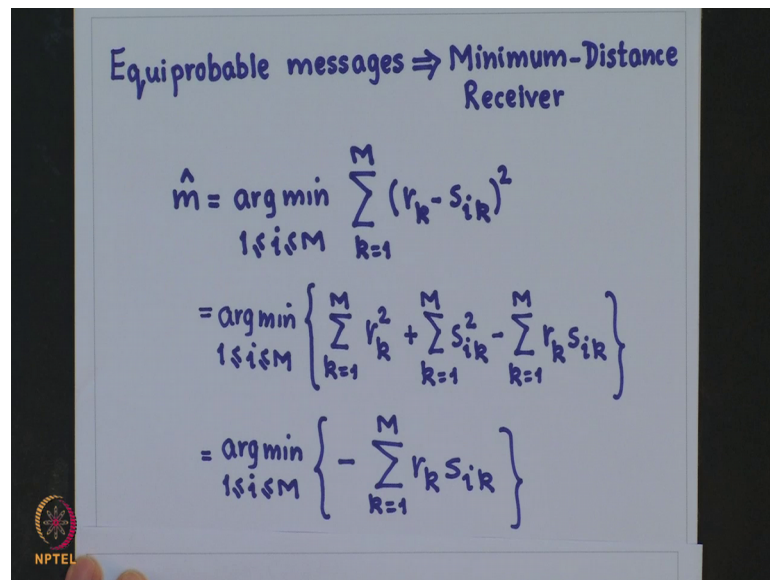 Equiprobable messages ⇒ Minimum-Distance
Receiver
m̂ = arg min_{1≤i≤M} ∑_{k=1}^{M} (r_k - s_{ik})^2
= arg min_{1≤i≤M} { ∑_{k=1}^{M} r_k^2 + ∑_{k=1}^{M} s_{ik}^2 - ∑_{k=1}^{M} r_k s_{ik} }
= arg min_{1≤i≤M} { - ∑_{k=1}^{M} r_k s_{ik} }
NPTEL